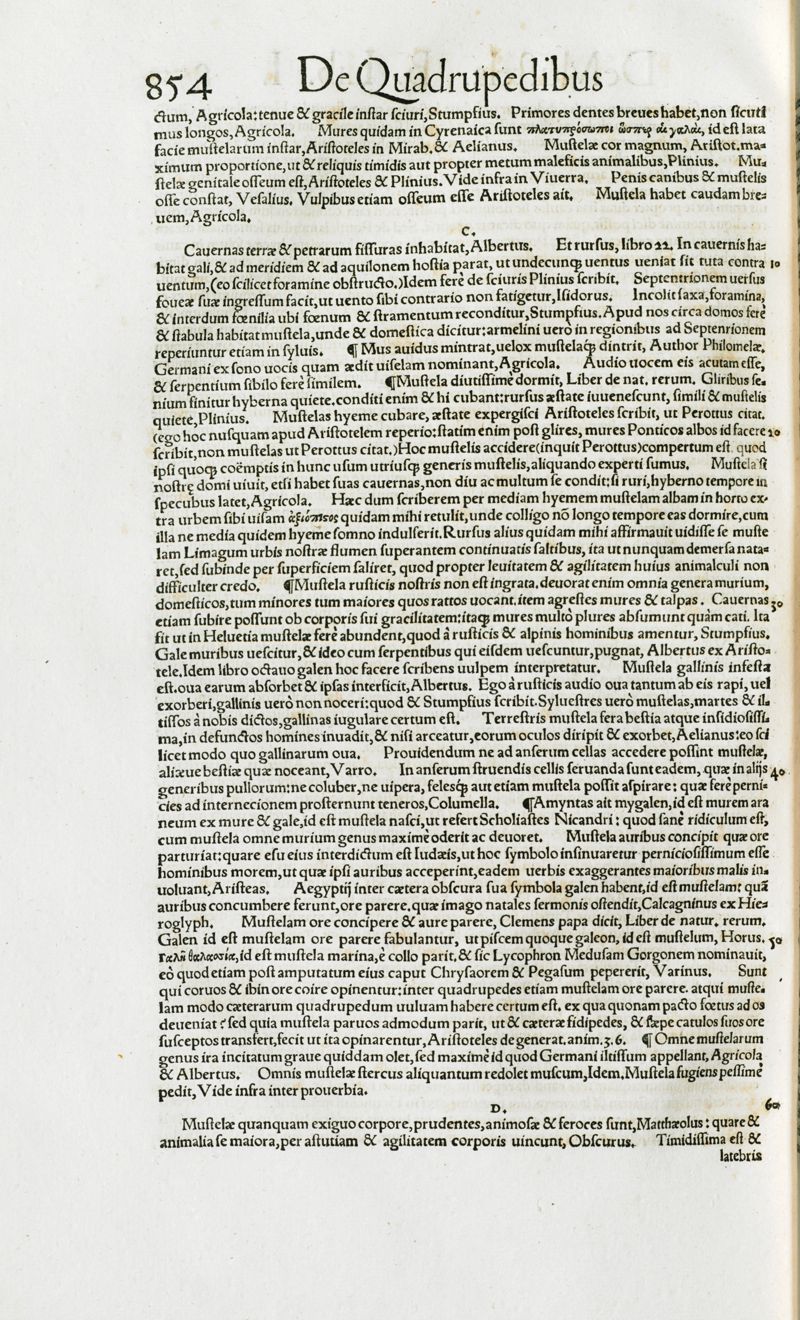 854 De Quadrupedibus
ctum, Agricola: tenue & gracile instar sciuri, Stumpsius. Primores dentes breues habet, non sicuti
mus longos, Agricola. Mures quidam in Cyrenaica sunt πλατυπρόσωποι ὥσπερ αἱ γαλαῖ, id est lata
facie mustelarum instar, Aristoteles in Mirab. & Aelianus. Mustelæ cor magnum, Aristot. ma=
ximum proportione, ut & reliquis timidis aut propter metum maleficis animalibus, Plinius. Mu=
stelæ genitale osseum est, Aristoteles & Plinius. Vide infra in Viuerra. Penis canibus & mustelis
osse constat, Vesalius. Vulpibus etiam osseum esse Aristoteles ait. Mustela habet caudam bre=
uem, Agricola.
C.
Cauernas terræ & petrarum fissuras inhabitat, Albertus. Et rursus, libro 22. In cauernis ha=
bitat gali, & ad meridiem & ad aquilonem hostia parat, ut undecunq; uentus ueniat sit tuta contra 10
uentum, (eo scilicet foramine obstructo.) Idem ferè de sciuris Plinius scribit. Septentrionem uersus
foueæ suæ ingressum facit, ut uento sibi contrario non fatigetur, Isidorus. Incolit saxa, foramina,
& interdum fœnilia ubi fœnum & stramentum reconditur, Stumpsius. Apud nos circa domos ferè
& stabula habitat mustela, unde & domestica dicitur: armelini uero in regionibus ad Septenrionem
reperiuntur etiam in syluis. ¶ Mus auidus mintrat, uelox mustelaq; dintrit, Author Philomelæ.
Germani ex sono uocis quam ædit uiselam nominant, Agricola. Audio uocem eis acutam esse,
& serpentium sibilo ferè similem. ¶ Mustela diutissimè dormit, Liber de nat. rerum. Gliribus se=
nium finitur hyberna quiete. conditi enim & hi cubant: rursus æstate iuuenescunt, simili & mustelis
quiete, Plinius. Mustelas hyeme cubare, æstate expergisci Aristoteles scribit, ut Perottus citat.
(ego hoc nusquam apud Aristotelem reperio: statim enim post glires, mures Ponticos albos id facere 20
scribit, non mustelas ut Perottus citat.) Hoc mustelis accidere (inquit Perottus) compertum est. quod
ipsi quoq; coëmptis in hunc usum utriusq; generis mustelis, aliquando experti sumus. Mustela si
nostre domi uiuit, etsi habet suas cauernas, non diu ac multum se condit: si ruri, hyberno tempore in
specubus latet, Agricola. Hæc dum scriberem per mediam hyemem mustelam albam in horto ex=
tra urbem sibi uisam ἀξιόπιστος quidam mihi retulit, unde colligo nõ longo tempore eas dormire, cum
illa ne media quidem hyeme somno indulserit. Rursus alius quidam mihi affirmauit uidisse se muste
lam Limagum urbis nostræ flumen superantem continuatis saltibus, ita ut nunquam demersa nata=
ret, sed subinde per superficiem saliret, quod propter leuitatem & agilitatem huius animalculi non
difficulter credo. ¶ Mustela rusticis nostris non est ingrata. deuorat enim omnia genera murium,
domesticos, tum minores tum maiores quos rattos uocant. item agrestes mures & talpas. Cauernas 30
etiam subire possunt ob corporis sui gracilitatem: itaq; mures multò plures absumunt quàm cati. Ita
fit ut in Heluetia mustelæ ferè abundent, quod à rusticis & alpinis hominibus amentur, Stumpsius.
Gale muribus uescitur, & ideo cum serpentibus qui eisdem uescuntur, pugnat, Albertus ex Aristo=
tele. Idem libro octauo galen hoc facere scribens uulpem interpretatur. Mustela gallinis infesta
est. oua earum absorbet & ipsas interficit, Albertus. Ego à rusticis audio oua tantum ab eis rapi, uel
exorberi, gallinis uerò non noceri: quod & Stumpsius scribit. Syluestres uerò mustelas, martes & il=
tissos à nobis dictos, gallinas iugulare certum est. Terrestris mustela fera bestia atque insidiosissi=
ma, in defunctos homines inuadit, & nisi arceatur, eorum oculos diripit & exorbet, Aelianus: eo sci
licet modo quo gallinarum oua. Prouidendum ne ad anserum cellas accedere possint mustelæ,
aliæue bestiæ quæ noceant, Varro. In anserum struendis cellis seruanda sunt eadem, quæ in alijs 40
generibus pullorum: ne coluber, ne uipera, felesq; aut etiam mustela possit aspirare: quæ ferè perni=
cies ad internecionem prosternunt teneros, Columella. ¶ Amyntas ait mygalen, id est murem ara
neum ex mure & gale, id est mustela nasci, ut refert Scholiastes Nicandri: quod sanè ridiculum est,
cum mustela omne murium genus maximè oderit ac deuoret. Mustela auribus concipit quæ ore
parturiat: quare esu eius interdictum est Iudæis, ut hoc symbolo insinuaretur perniciosissimum esse
hominibus morem, ut quæ ipsi auribus acceperint, eadem uerbis exaggerantes maioribus malis in=
uoluant, Aristeas. Aegyptij inter cætera obscura sua symbola galen habent, id est mustelam: quã
auribus concumbere ferunt, ore parere. quæ imago natales sermonis ostendit, Calcagninus ex Hie=
roglyph. Mustelam ore concipere & aure parere, Clemens papa dicit, Liber de natur. rerum.
Galen id est mustelam ore parere fabulantur, ut piscem quoque galeon, id est mustelum, Horus. 50
Γαλῆ θαλασσία, id est mustela marina, è collo parit. & sic Lycophron Medusam Gorgonem nominauit,
eò quod etiam post amputatum eius caput Chrysaorem & Pegasum pepererit, Varinus. Sunt
qui coruos & ibin ore coire opinentur: inter quadrupedes etiam mustelam ore parere. atqui muste=
lam modo cæterarum quadrupedum uuluam habere certum est. ex qua quonam pacto fœtus ad os
deueniat? sed quia mustela paruos admodum parit, ut & cæteræ fidipedes, & sæpe catulos suos ore
susceptos transfert, fecit ut ita opinarentur, Aristoteles de generat. anim. 3. 6. ¶ Omne mustelarum
genus ira incitatum graue quiddam olet, sed maximè id quod Germani iltissum appellant, Agricola
& Albertus. Omnis mustelæ stercus aliquantum redolet muscum, Idem. Mustela fugiens pessimè
pedit, Vide infra inter prouerbia.
D. 60
Mustelæ quanquam exiguo corpore, prudentes, animosæ & feroces sunt, Matthæolus: quare &
animalia se maiora, per astutiam & agilitatem corporis uincunt, Obscurus. Timidissima est &
latebris